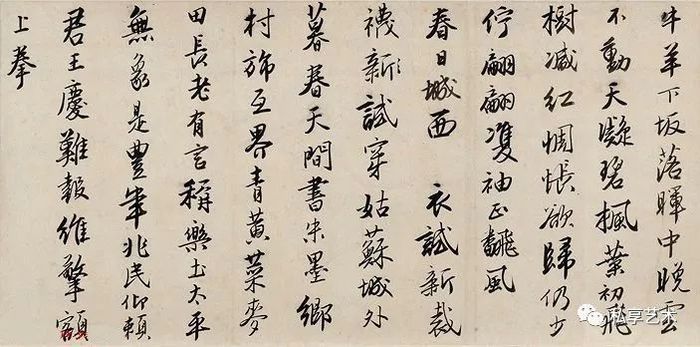 牛羊下坂落暉中晚雲
不動天凝碧楓葉初飛
樹减紅惆悵欲歸仍少
佇翩翩雙袖正飜風
春日城西 衣試新裁
襪新試穿姑蘇城外
暮春天間書朱墨鄉
村旆互界青黄菜麥
田長老有言稱樂土太平
無象是豊年兆民仰賴
君王慶難報維擎額
上拳
私享艺术